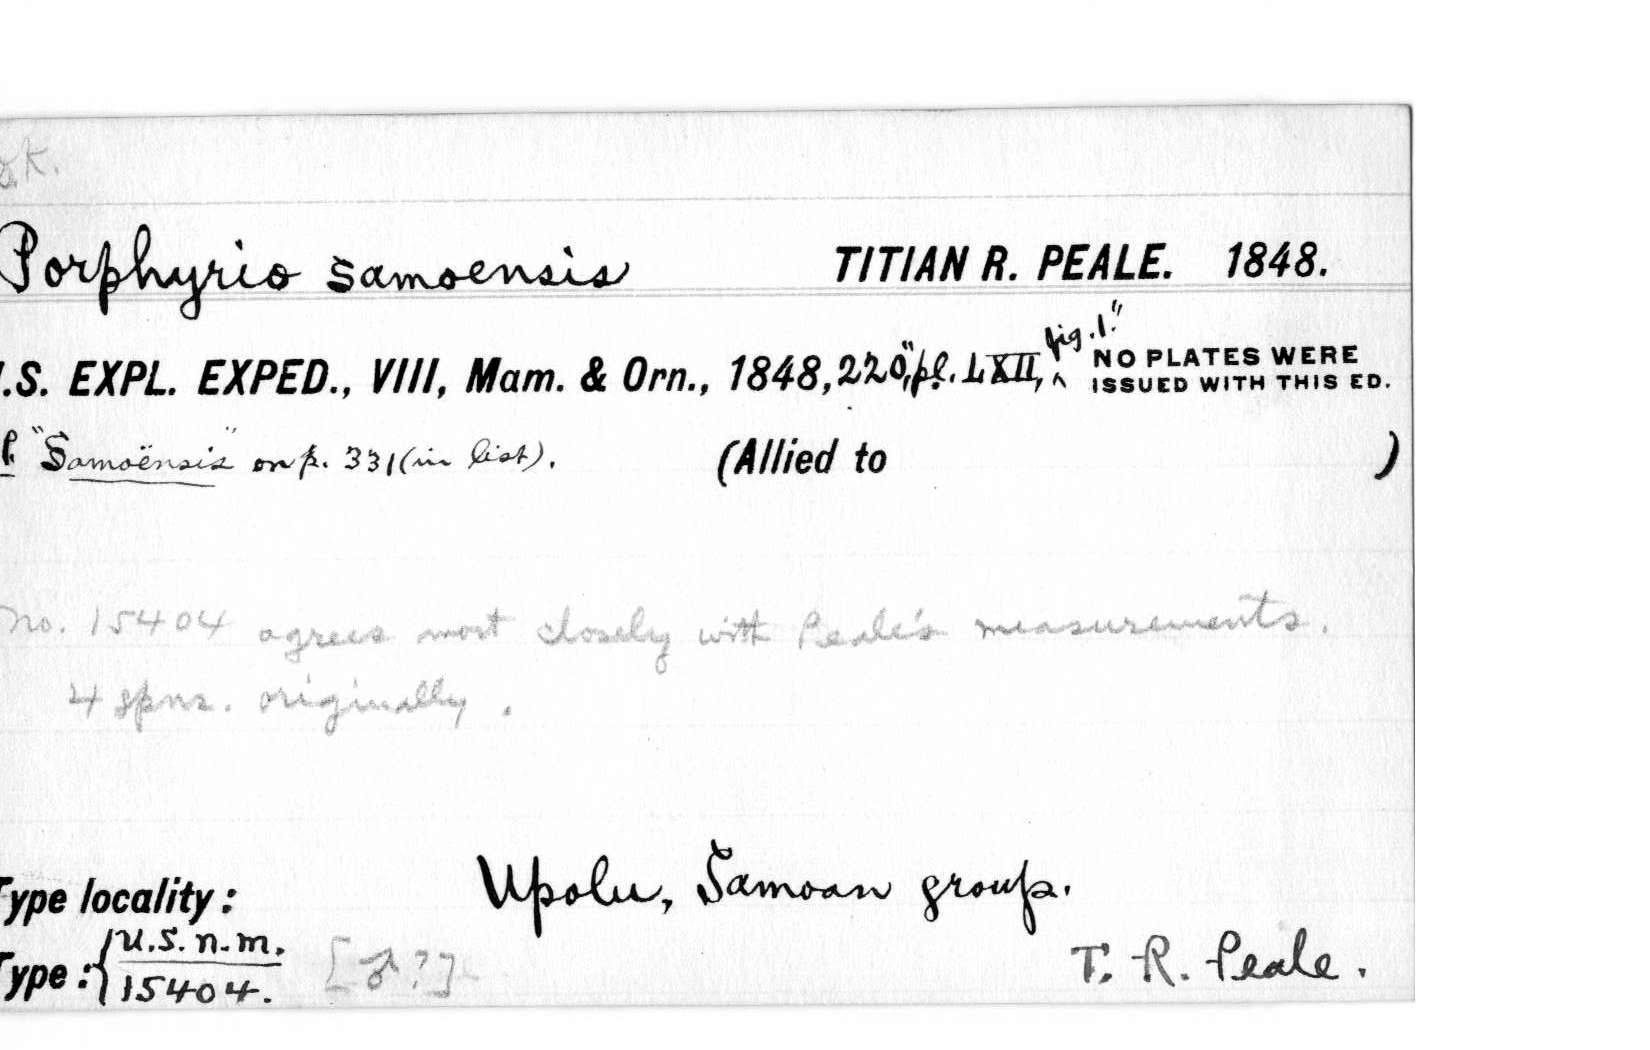 O.K.
Porphyrio samoensis TITIAN R. PEALE. 1848.
.S. EXPL. EXPED., VIII, Mam. & Orn., 1848, 220, "pl. LXII, fig. 1." NO PLATES WERE
ISSUED WITH THIS ED.
"Samoënsis" on p. 331 (in list). (Allied to )
No. 15404 agrees most closely with Peale's measurements.
4 spns. originally.
Type locality: Upolu, Samoan group.
Type: { U.S.N.M. [♂?] T. R. Peale.
15404.